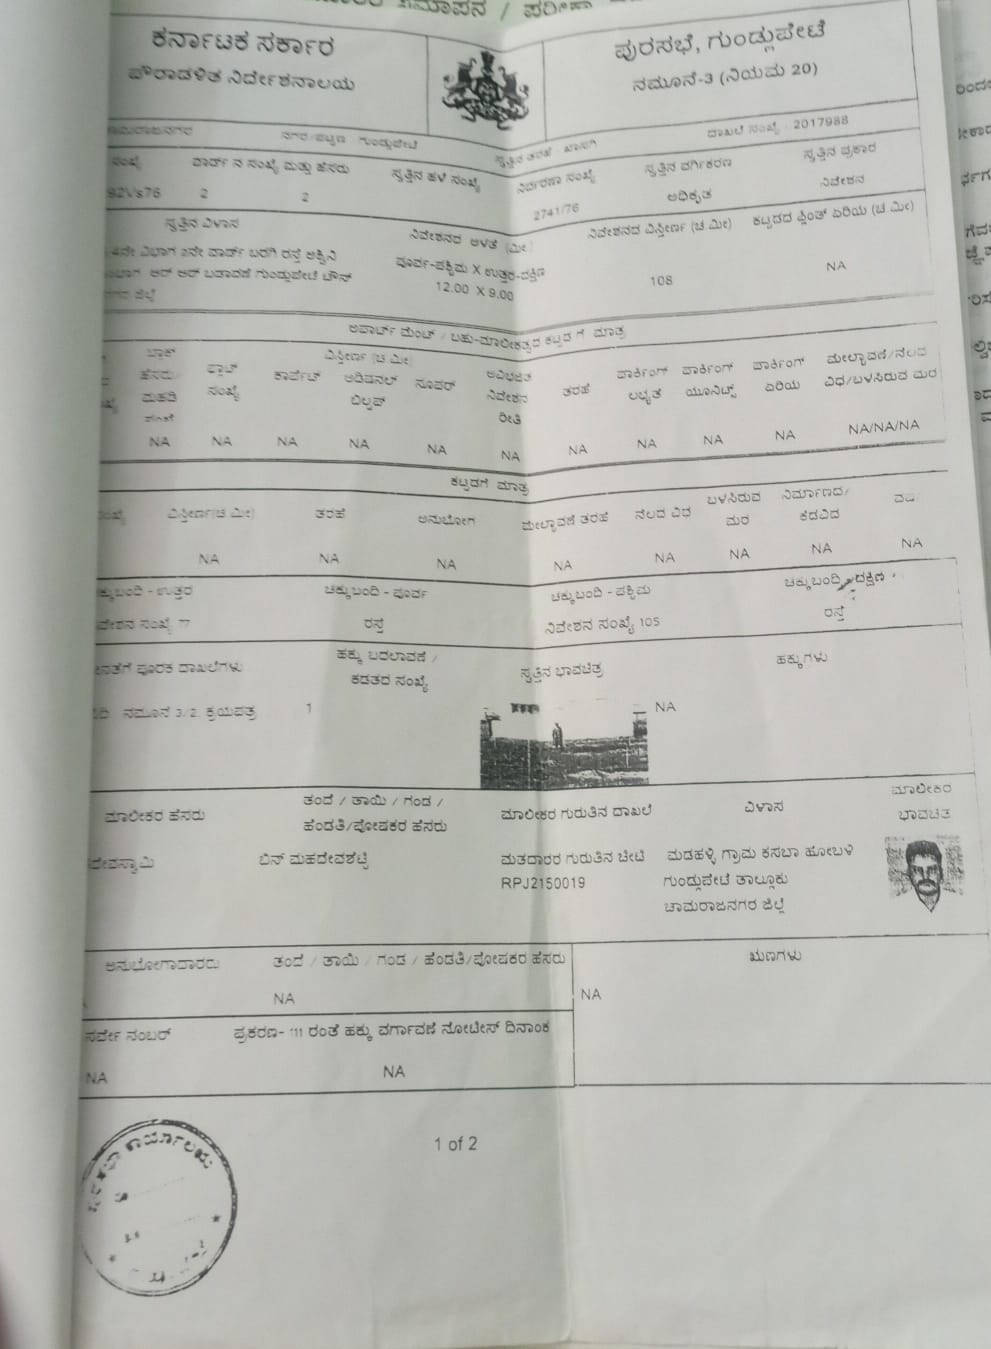 ಕರ್ನಾಟಕ ಸರ್ಕಾರ
ಪೌರಾಡಳಿತ ನಿರ್ದೇಶನಾಲಯ
ಪುರಸಭೆ, ಗುಂಡ್ಲುಪೇಟೆ
ನಮೂನೆ-3 (ನಿಯಮ 20)
ನಗರ/ಪಟ್ಟಣ ಗುಂಡ್ಲುಪೇಟೆ
ಸ್ವತ್ತಿನ ತರಹೆ ಖಾಸಗಿ
ದಾಖಲೆ ಸಂಖ್ಯೆ : 2017988
ಸಂಖ್ಯೆ ವಾರ್ಡ್ ನ ಸಂಖ್ಯೆ ಮತ್ತು ಹೆಸರು ಸ್ವತ್ತಿನ ಹಳೆ ಸಂಖ್ಯೆ ನಿರ್ಧರಣಾ ಸಂಖ್ಯೆ ಸ್ವತ್ತಿನ ವರ್ಗೀಕರಣ ಸ್ವತ್ತಿನ ಪ್ರಕಾರ
2 2 2741/76 ಅಧಿಕೃತ ನಿವೇಶನ
ಸ್ವತ್ತಿನ ವಿಳಾಸ ನಿವೇಶನದ ಅಳತೆ (ಮೀ) ನಿವೇಶನದ ವಿಸ್ತೀರ್ಣ (ಚ ಮೀ) ಕಟ್ಟಡದ ಪ್ಲಿಂತ್ ಏರಿಯ (ಚ ಮೀ)
4ನೇ ವಿಭಾಗ 2ನೇ ವಾರ್ಡ್ ಬರಗಿ ರಸ್ತೆ ಅಶ್ವಿನಿ ಪೂರ್ವ-ಪಶ್ಚಿಮ X ಉತ್ತರ-ದಕ್ಷಿಣ
ಆರ್ ಆರ್ ಬಡಾವಣೆ ಗುಂಡ್ಲುಪೇಟೆ ಟೌನ್ 12.00 X 9.00 108 NA
ಜಿಲ್ಲೆ
ಅಪಾರ್ಟ್ ಮೆಂಟ್ / ಬಹು-ಮಾಲೀಕತ್ವದ ಕಟ್ಟಡ ಗೆ ಮಾತ್ರ
ಬ್ಲಾಕ್ ಹೆಸರು/ ಫ್ಲಾಟ್ ಸಂಖ್ಯೆ ವಿಸ್ತೀರ್ಣ (ಚ ಮೀ) ಕಾರ್ಪೆಟ್ ಅಡಿಷನಲ್ ಬಿಲ್ಟಪ್ ಸೂಪರ್ ಅವಿಭಜಿತ ನಿವೇಶನ ರೀತಿ ತರಹೆ ಪಾರ್ಕಿಂಗ್ ಲಭ್ಯತೆ ಪಾರ್ಕಿಂಗ್ ಯೂನಿಟ್ಸ್ ಪಾರ್ಕಿಂಗ್ ಏರಿಯ ಮೇಲ್ಛಾವಣಿ/ನೆಲದ ವಿಧ/ಬಳಸಿರುವ ಮರ
NA NA NA NA NA NA NA NA NA NA NA/NA/NA
ಕಟ್ಟಡಗೆ ಮಾತ್ರ
ವಿಸ್ತೀರ್ಣ(ಚ ಮೀ) ತರಹೆ ಅನುಭೋಗ ಮೇಲ್ಛಾವಣಿ ತರಹೆ ನೆಲದ ವಿಧ ಬಳಸಿರುವ ಮರ ನಿರ್ಮಾಣದ/ ಕೆಡವಿದ
NA NA NA NA NA NA NA NA
ಚಕ್ಕುಬಂದಿ - ಪೂರ್ವ ಚಕ್ಕುಬಂದಿ - ಪಶ್ಚಿಮ ಚಕ್ಕುಬಂದಿ - ದಕ್ಷಿಣ
ರಸ್ತೆ ನಿವೇಶನ ಸಂಖ್ಯೆ 105 ರಸ್ತೆ
ಪೂರಕ ದಾಖಲೆಗಳು ಹಕ್ಕು ಬದಲಾವಣೆ / ಕಡತದ ಸಂಖ್ಯೆ ಸ್ವತ್ತಿನ ಭಾವಚಿತ್ರ ಹಕ್ಕುಗಳು
ನಮೂನೆ 3/2, ಕ್ರಯಪತ್ರ 1 NA
ಮಾಲೀಕರ ಹೆಸರು ತಂದೆ / ತಾಯಿ / ಗಂಡ / ಹೆಂಡತಿ/ಪೋಷಕರ ಹೆಸರು ಮಾಲೀಕರ ಗುರುತಿನ ದಾಖಲೆ ವಿಳಾಸ ಮಾಲೀಕರ ಭಾವಚಿತ್ರ
ಬಿನ್ ಮಹದೇವಶೆಟ್ಟಿ ಮತದಾರರ ಗುರುತಿನ ಚೀಟಿ ಮಡಹಳ್ಳಿ ಗ್ರಾಮ ಕಸಬಾ ಹೋಬಳಿ
RPJ2150019 ಗುಂಡ್ಲುಪೇಟೆ ತಾಲ್ಲೂಕು
ಚಾಮರಾಜನಗರ ಜಿಲ್ಲೆ
ಅನುಭೋಗದಾರರು ತಂದೆ / ತಾಯಿ / ಗಂಡ / ಹೆಂಡತಿ/ಪೋಷಕರ ಹೆಸರು ಋಣಗಳು
NA NA
ಸರ್ವೇ ನಂಬರ್ ಪ್ರಕರಣ- '111 ರಂತೆ ಹಕ್ಕು ವರ್ಗಾವಣೆ ನೋಟೀಸ್ ದಿನಾಂಕ
NA NA
1 of 2